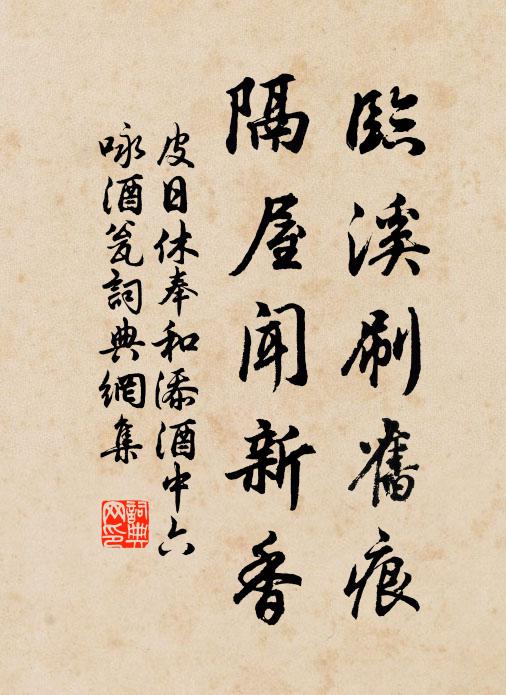 臨溪刷舊痕
隔屋聞新香
皮日休奉和添酒中六
咏酒瓮詞典網集
詞典网印